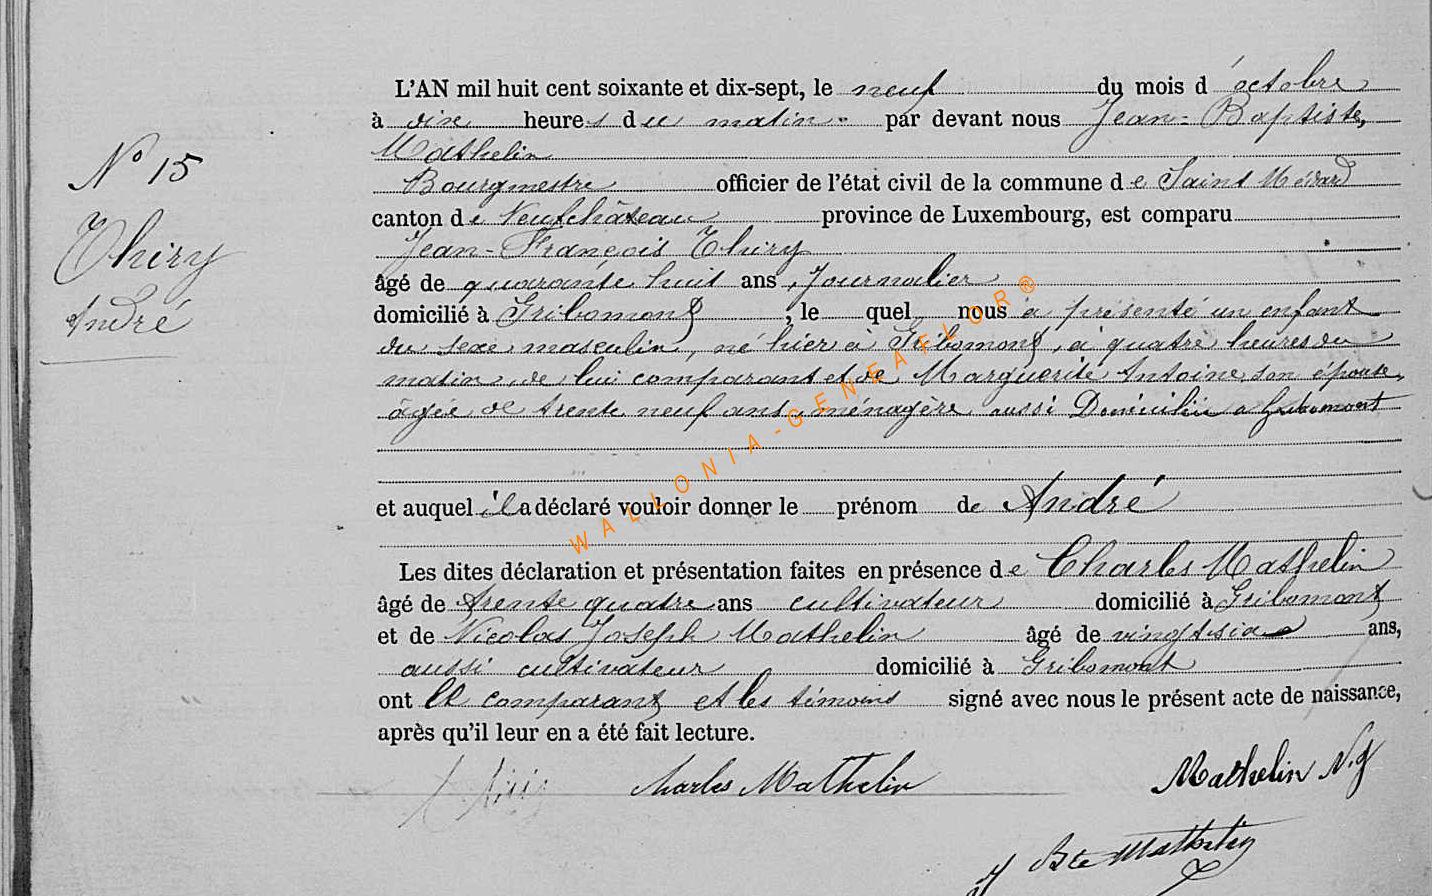 N° 15
Thiry
André
L'AN mil huit cent soixante et dix-sept, le neuf du mois d'octobre
à dix heures du matin par devant nous Jean-Baptiste,
Mathelin
Bourgmestre officier de l'état civil de la commune de Saint Médard
canton de Neufchâteau province de Luxembourg, est comparu
Jean-François Thiry
âgé de quarante huit ans, Journalier
domicilié à Gribomont, le quel nous a présenté un enfant
du sexe masculin, né hier à Gribomont, à quatre heures du
matin, de lui comparant et de Marguerite Antoine, son épouse,
âgée de trente neuf ans, ménagère aussi Domiciliée a Gribomont
et auquel il a déclaré vouloir donner le prénom de André
Les dites déclaration et présentation faites en présence de Charles Mathelin
âgé de trente quatre ans cultivateur domicilié à Gribomont
et de Nicolas Joseph Mathelin âgé de vingt six ans,
aussi cultivateur domicilié à Gribomont
ont le comparant et les témoins signé avec nous le présent acte de naissance,
après qu'il leur en a été fait lecture.
Thiry Charles Mathelin Mathelin N.J
J Bte Mathelin
WALLONIA-GENEAFLOR®